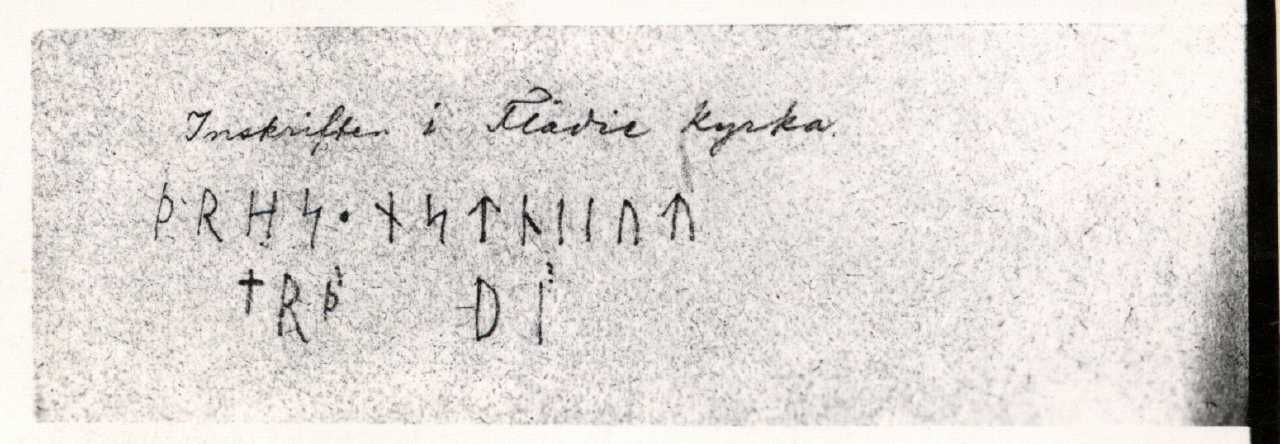 Inskriften i Flädie kyrka.
ᚦ·ᚱᚼᛋ·ᚾᛋᛏᚾᛁᛁᚢᛏᚢ
†Rᚦ DI